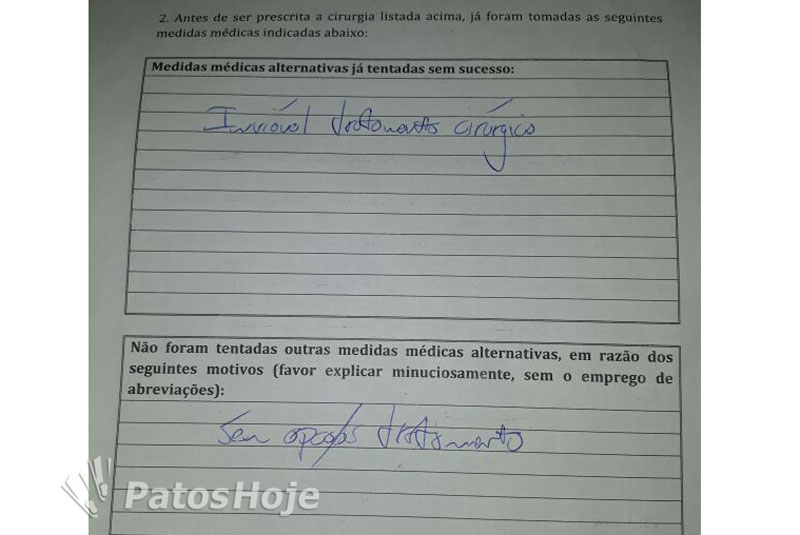 2. Antes de ser prescrita a cirurgia listada acima, já foram tomadas as seguintes
medidas médicas indicadas abaixo:
Medidas médicas alternativas já tentadas sem sucesso:
Inviável tratamento cirúrgico
Não foram tentadas outras medidas médicas alternativas, em razão dos
seguintes motivos (favor explicar minuciosamente, sem o emprego de
abreviações):
Sem opções tratamento
PatosHoje